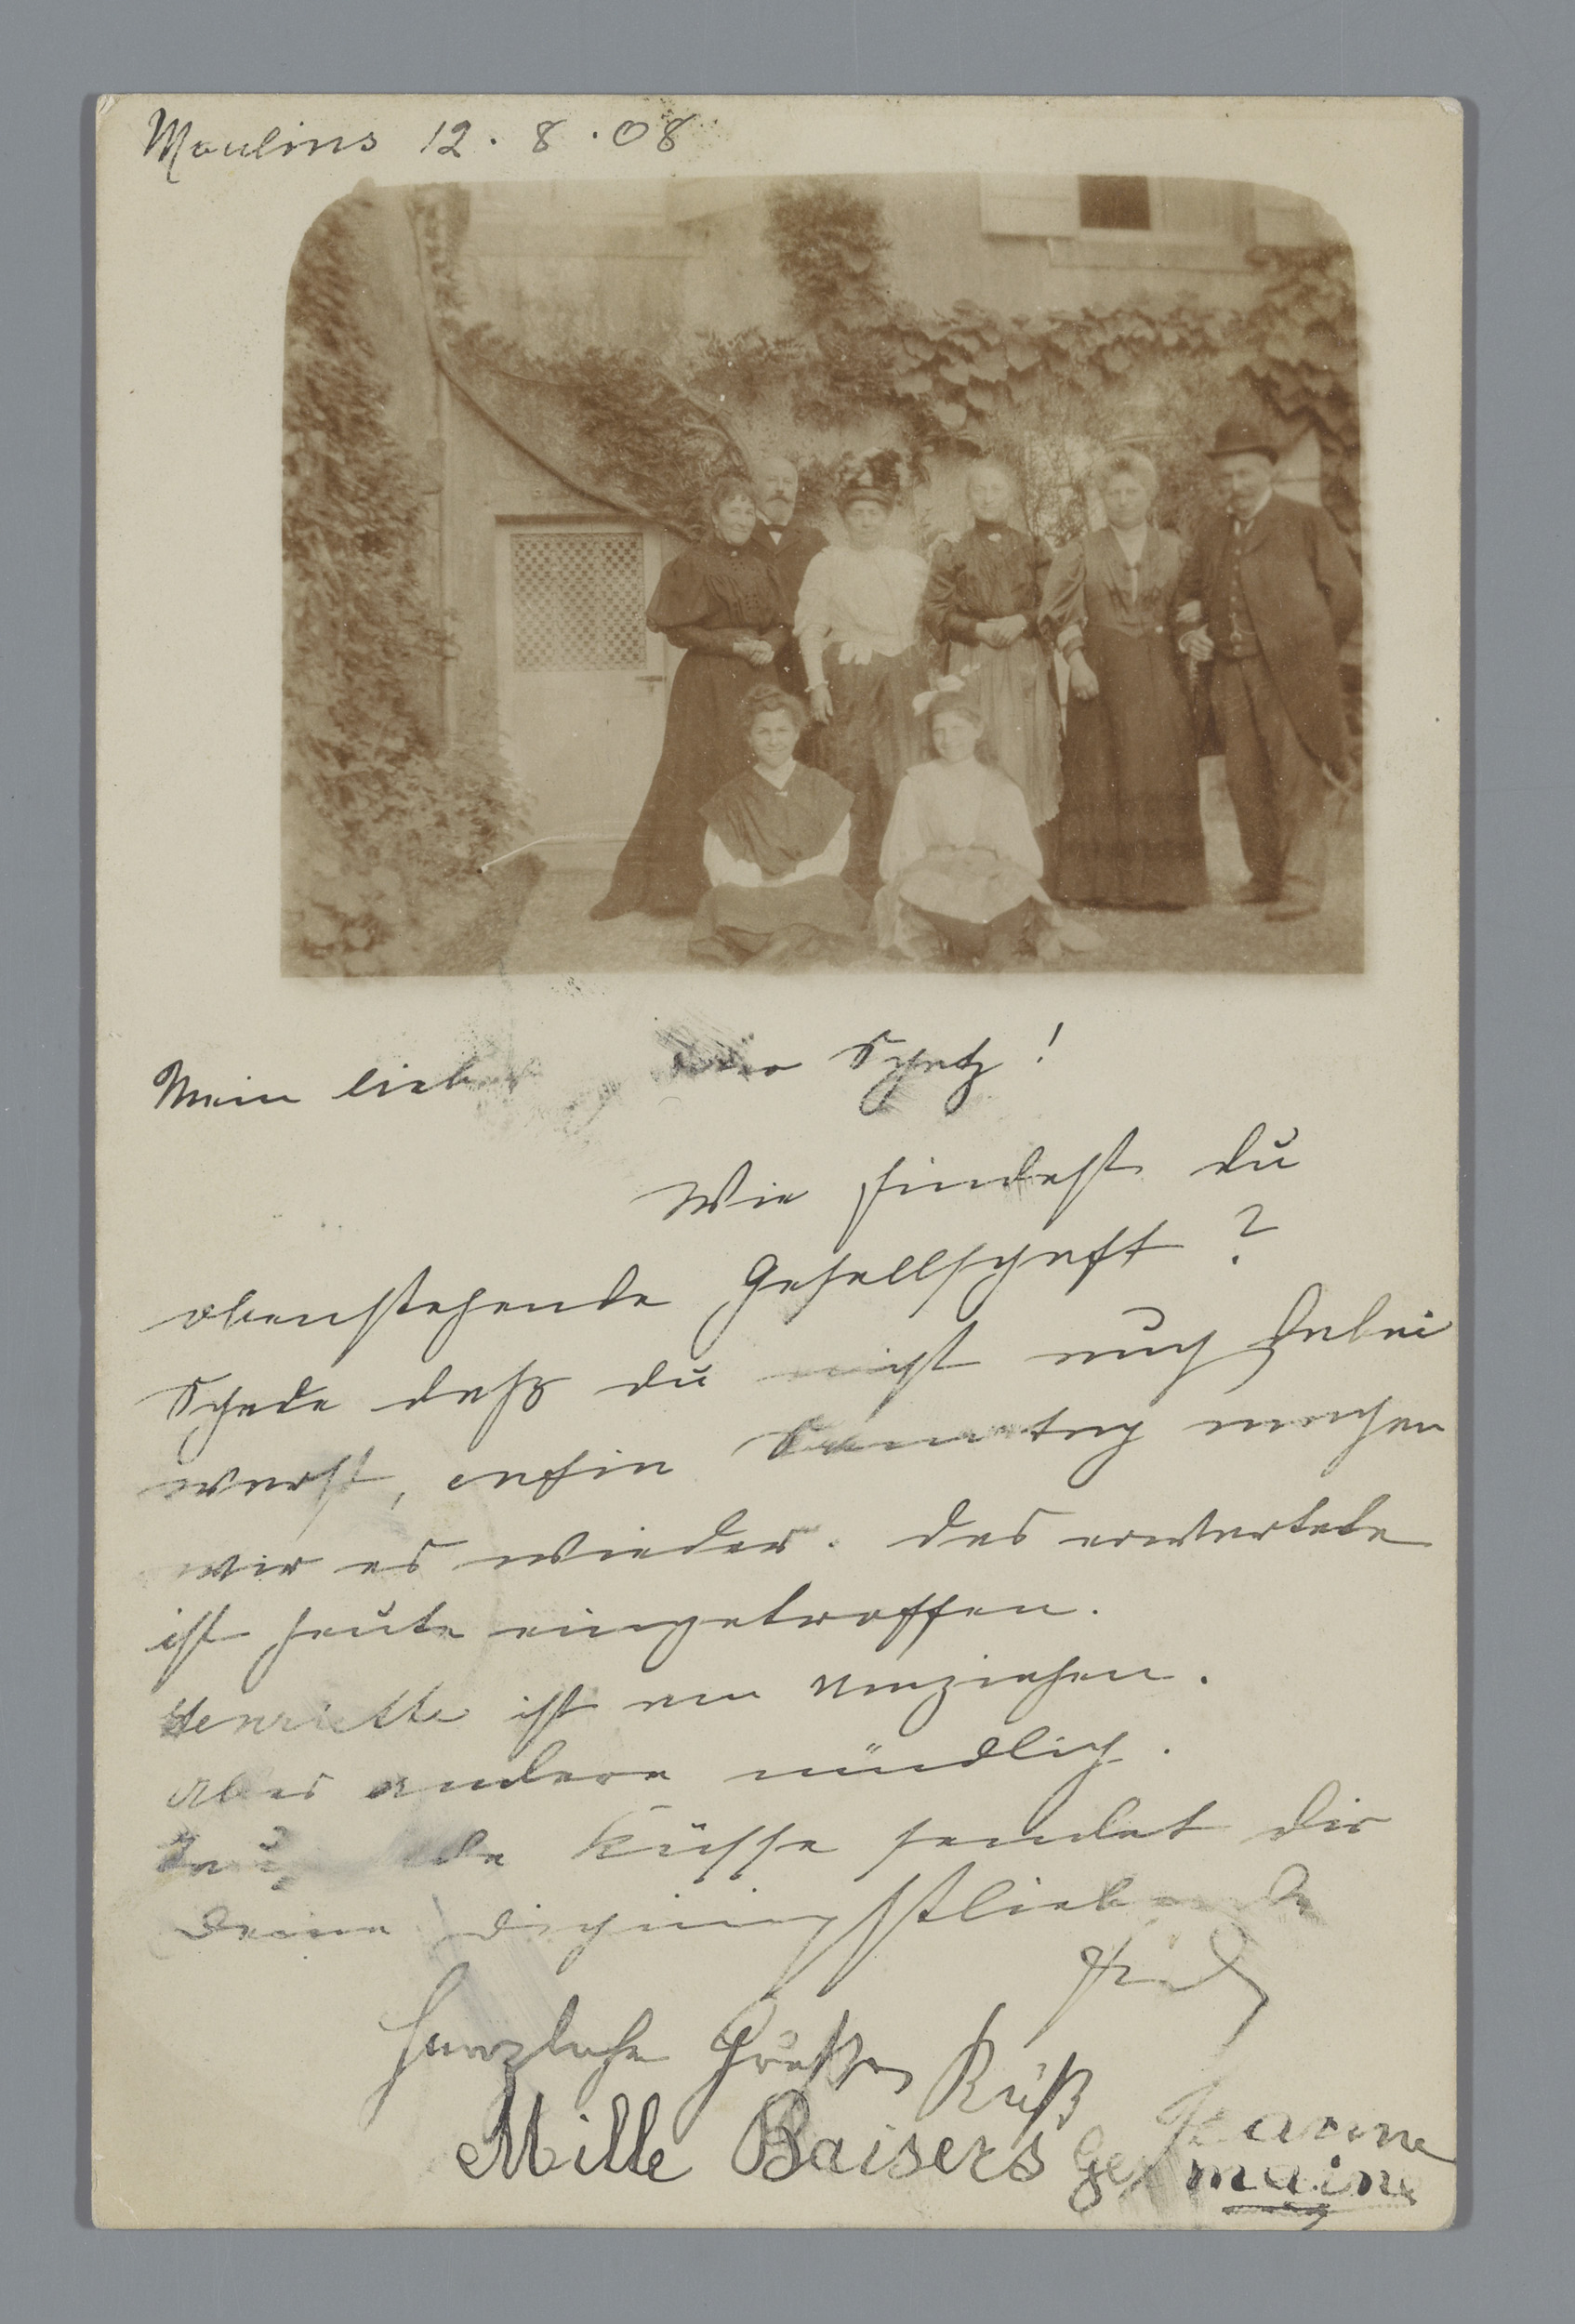 Moulins 12.8.08
Mein lieber Schatz!
Wie findest du
obenstehende Gesellschaft?
Schade daß du nicht auch dabei
warst, enfin Samstag machen
wir es wieder. das erwartete
ist heute eingetroffen.
Henriette ist am umziehen.
alles andere mündlich.
Küsse sendet dir
Deine dich innigstliebende
Herzliche Grüße, Küß Jeanne
Mille Baisers Germaine